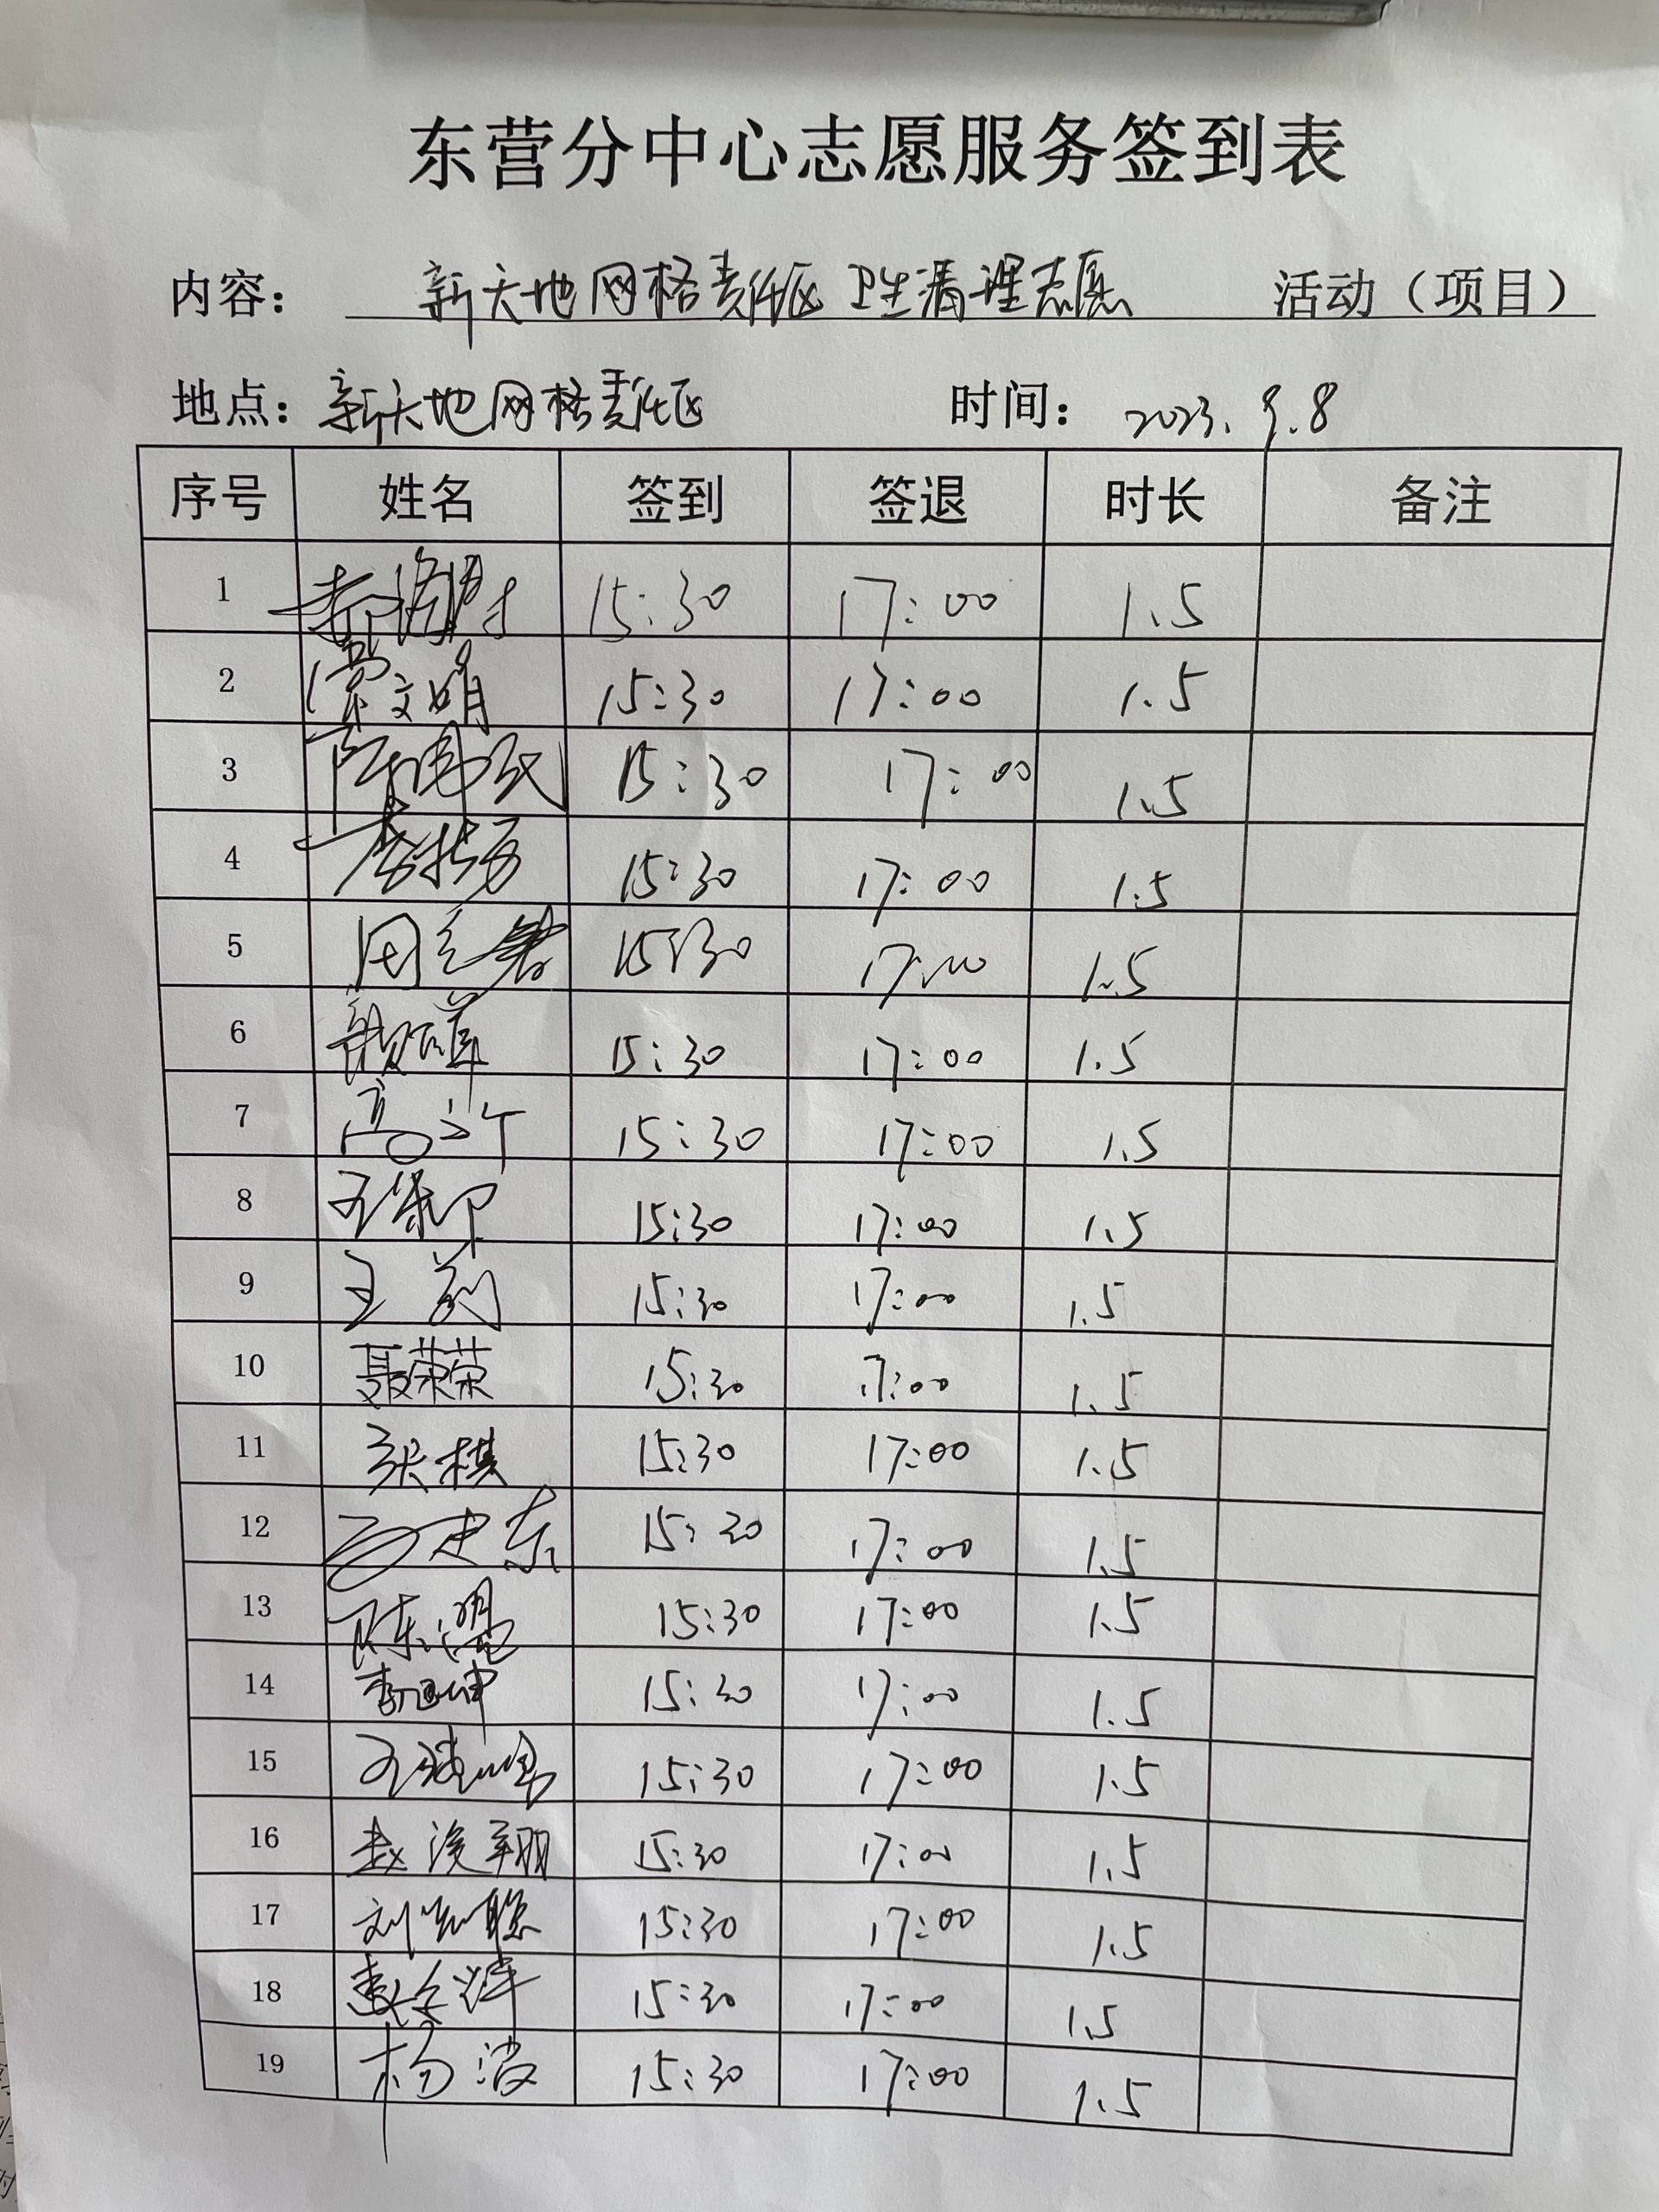 东营分中心志愿服务签到表
内容： 新天地网格责任区卫生清理志愿 活动（项目）
地点：新天地网格责任区 时间：2023.9.8
序号 姓名 签到 签退 时长 备注
1 15:30 17:00 1.5
2 文娟 15:30 17:00 1.5
3 15:30 17:00 1.5
4 15:30 17:00 1.5
5 15:30 17:00 1.5
6 15:30 17:00 1.5
7 高 15:30 17:00 1.5
8 王 15:30 17:00 1.5
9 王 15:30 17:00 1.5
10 聂荣荣 15:30 17:00 1.5
11 张棋 15:30 17:00 1.5
12 15:30 17:00 1.5
13 陈 15:30 17:00 1.5
14 李 坤 15:30 17:00 1.5
15 王 15:30 17:00 1.5
16 赵浚翔 15:30 17:00 1.5
17 刘 聪 15:30 17:00 1.5
18 15:30 17:00 1.5
19 杨波 15:30 17:00 1.5